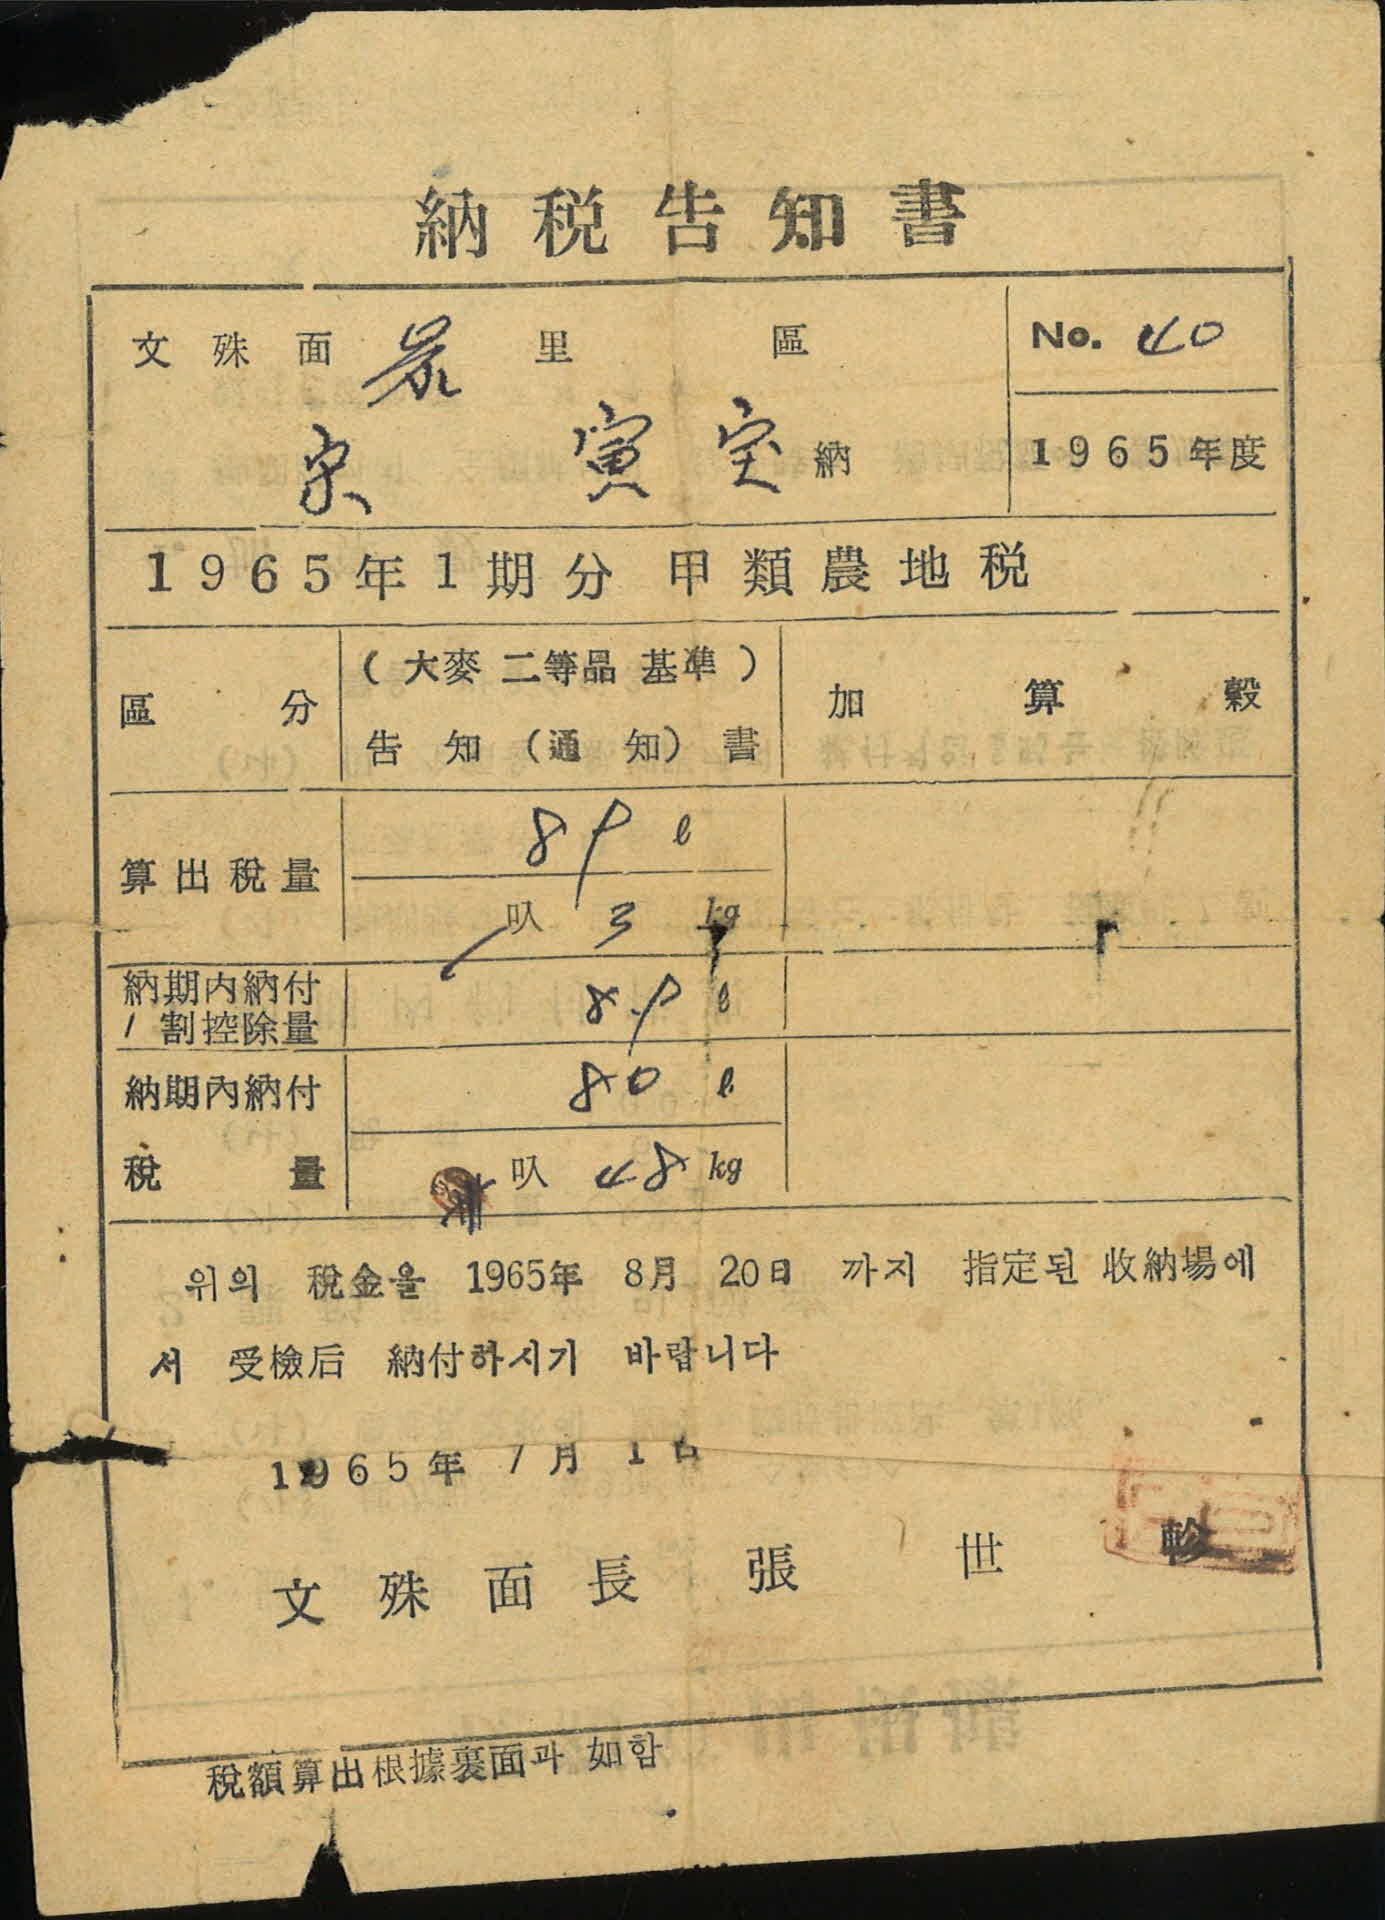 納税告知書
文殊面 里 區
No. 40
宋 寅宝 納
1965年度
1965年1期分 甲類農地税
區分
(大麥 二等品 基準)
告知(通知)書
加算穀
算出稅量
89 ℓ
叺 3 kg
納期内納付
1割控除量
8.9 ℓ
納期內納付
稅量
80 ℓ
叺 48 kg
위의 稅金을 1965年 8月 20日 까지 指定된 收納場에
서 受檢后 納付하시기 바랍니다
1965年 7月 1日
文殊面長 張世軫
稅額算出根據裏面과 如함